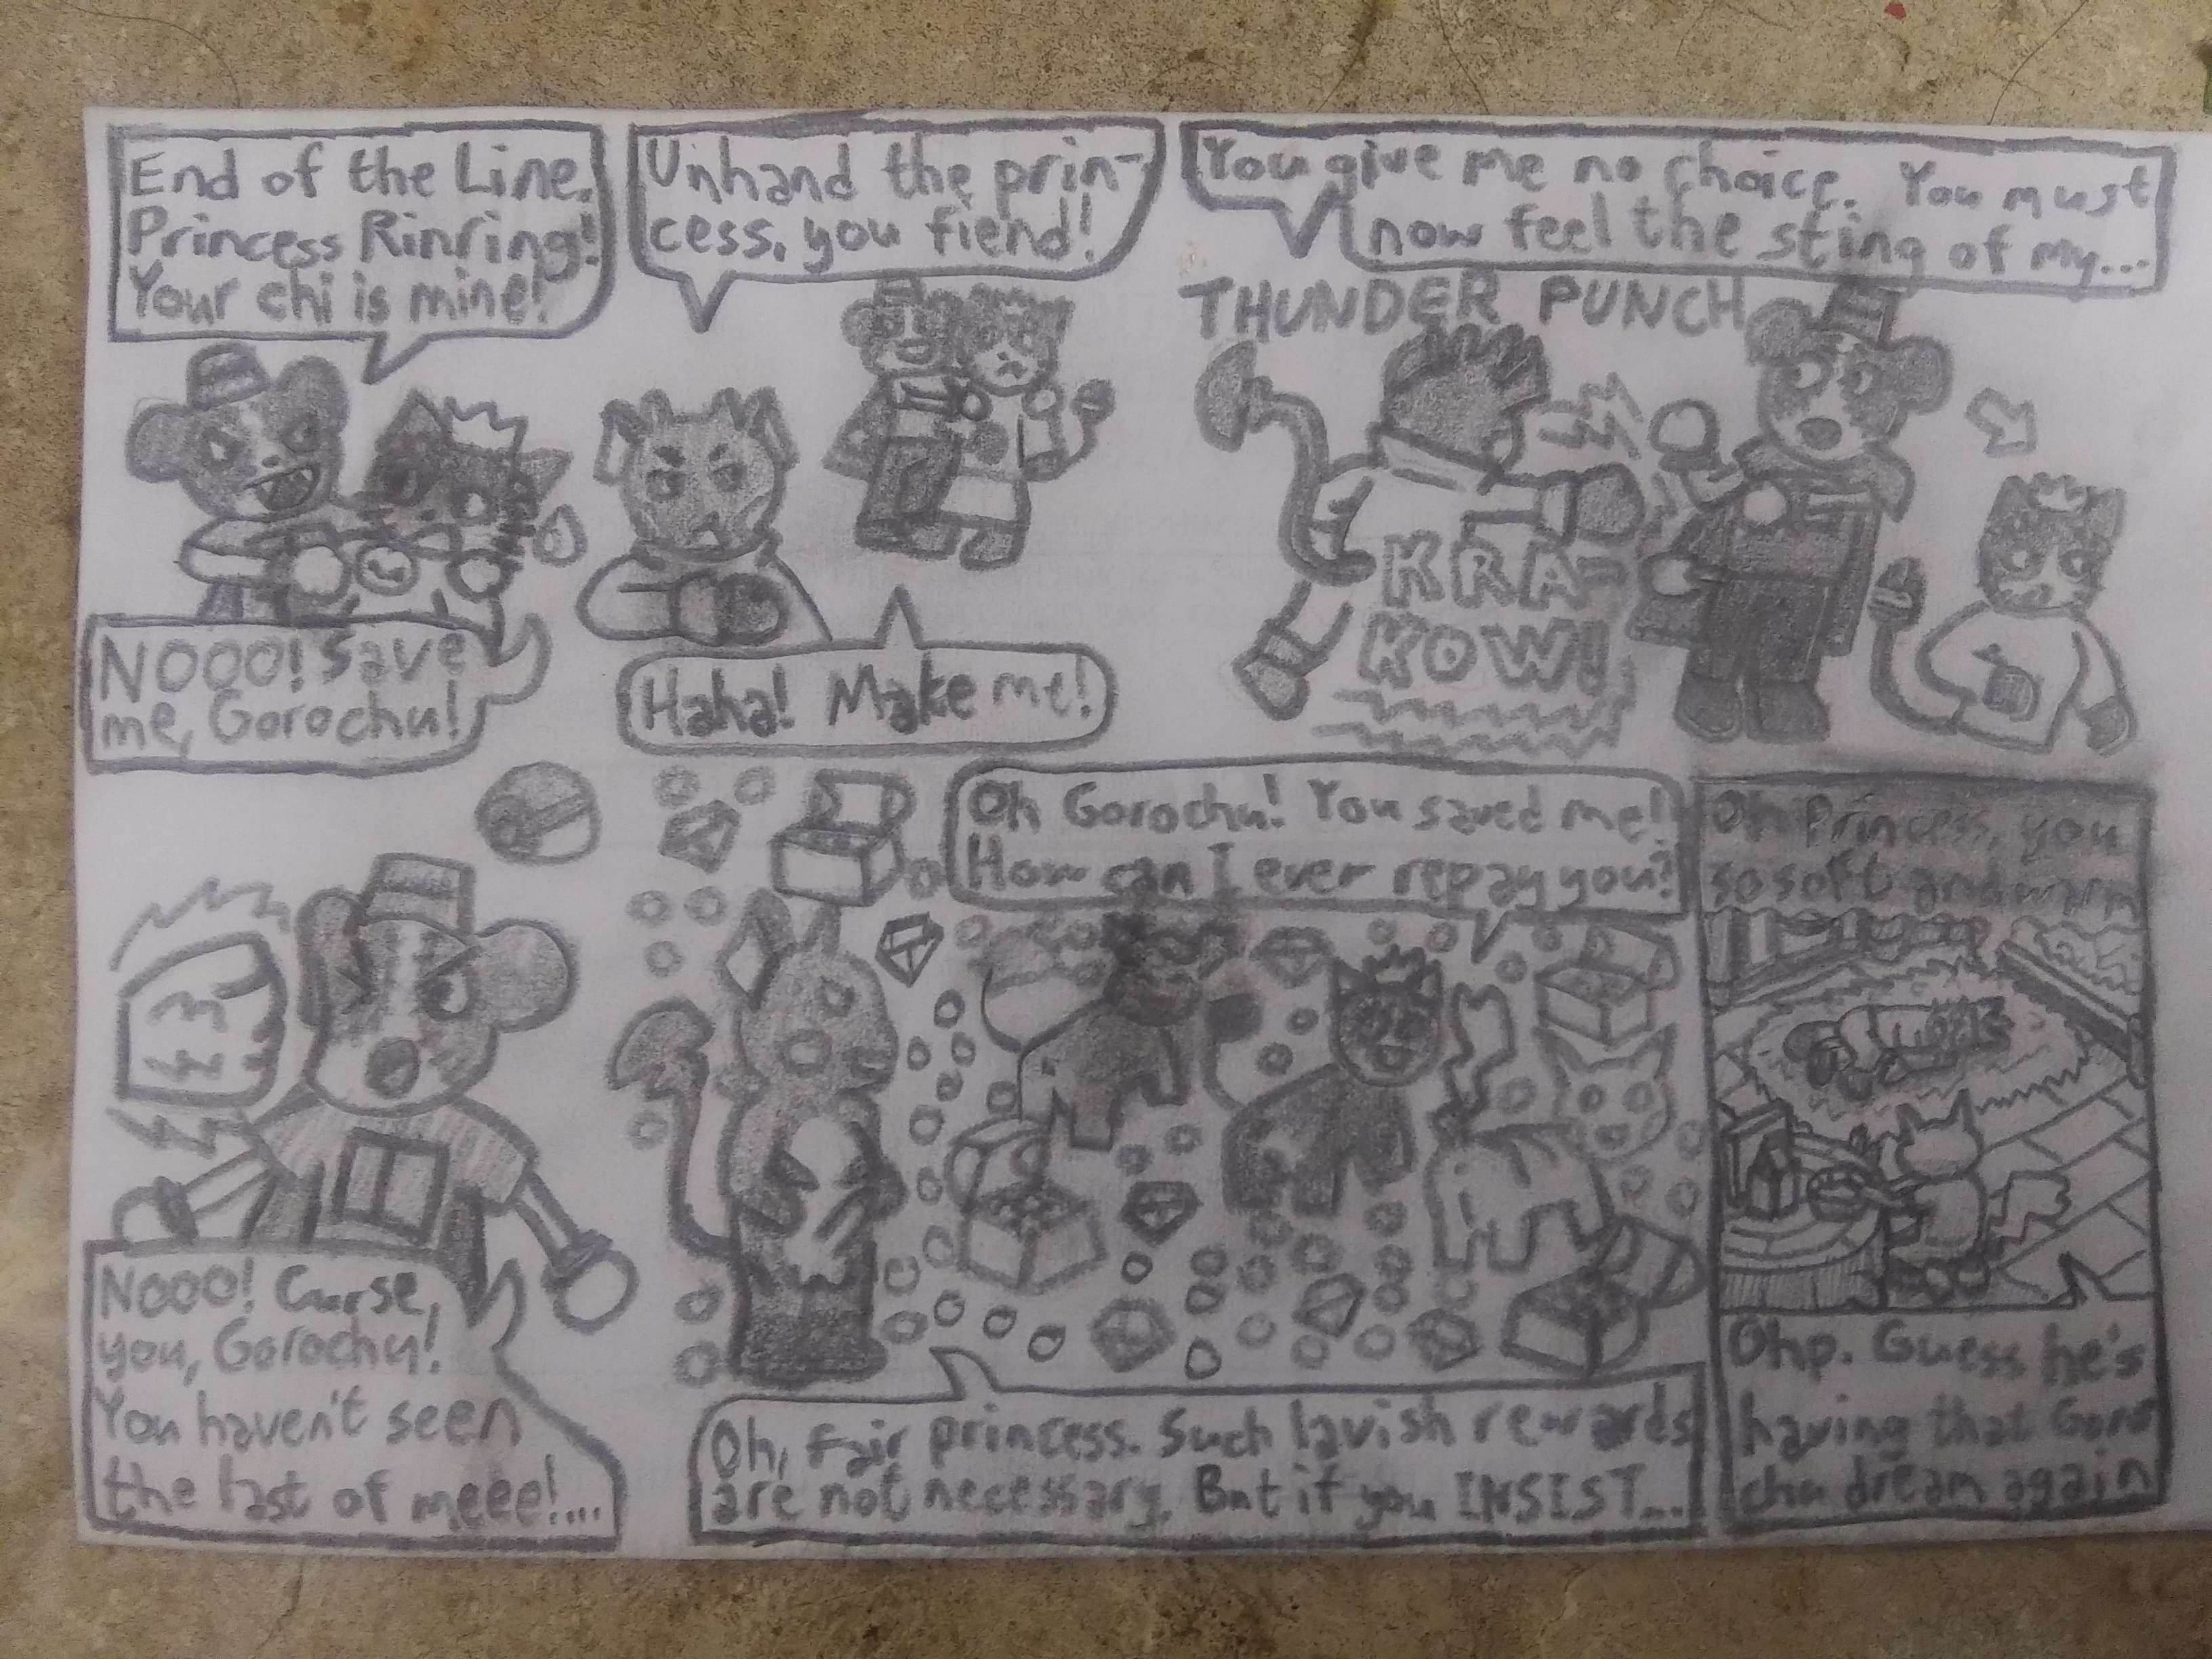 End of the Line,
Princess Rinring!
Your chi is mine!
NOOO! Save
me, Gorochu!
Unhand the prin-
cess, you fiend!
Haha! Make me!
You give me no choice. You must
now feel the sting of my...
THUNDER PUNCH
KRA-
KOW!
Nooo! Curse,
you, Gorochu!
You haven't seen
the last of meee!...
Oh Gorochu! You saved me!
How can I ever repay you?
Oh, fair princess. Such lavish rewards
are not necessary. But if you INSIST...
Oh Princess, you
so soft and warm
Ohp. Guess he's
having that Goro
chu dream again